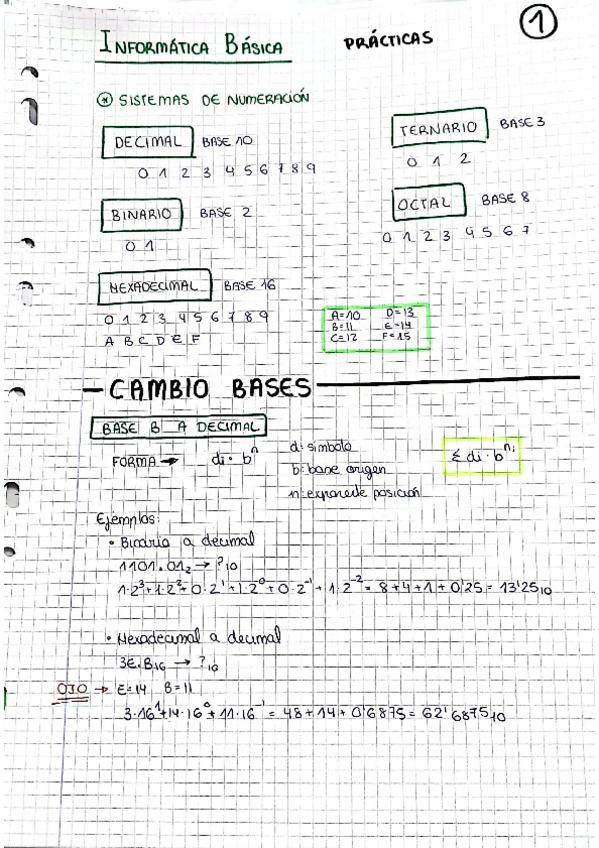 INFORMÁTICA BÁSICA PRÁCTICAS 1
* SISTEMAS DE NUMERACIÓN
DECIMAL BASE 10
0 1 2 3 4 5 6 7 8 9
TERNARIO BASE 3
0 1 2
BINARIO BASE 2
0 1
OCTAL BASE 8
0 1 2 3 4 5 6 7
HEXADECIMAL BASE 16
0 1 2 3 4 5 6 7 8 9
A B C D E F
A=10 D=13
B=11 E=14
C=12 F=15
— CAMBIO BASES
BASE B A DECIMAL
FORMA → di · bⁿ
di: símbolo
b: base origen
n: exponente posición
Σ di · bⁿⁱ
Ejemplos:
• Binario a decimal
1101.01₂ → ?₁₀
1·2³+1·2²+0·2¹+1·2⁰+0·2⁻¹+1·2⁻² = 8+4+1+0'25 = 13'25₁₀
• Hexadecimal a decimal
3E.B₁₆ → ?₁₀
OJO → E=14 B=11
3·16¹+14·16⁰+11·16⁻¹ = 48+14+0'6875 = 62'6875₁₀